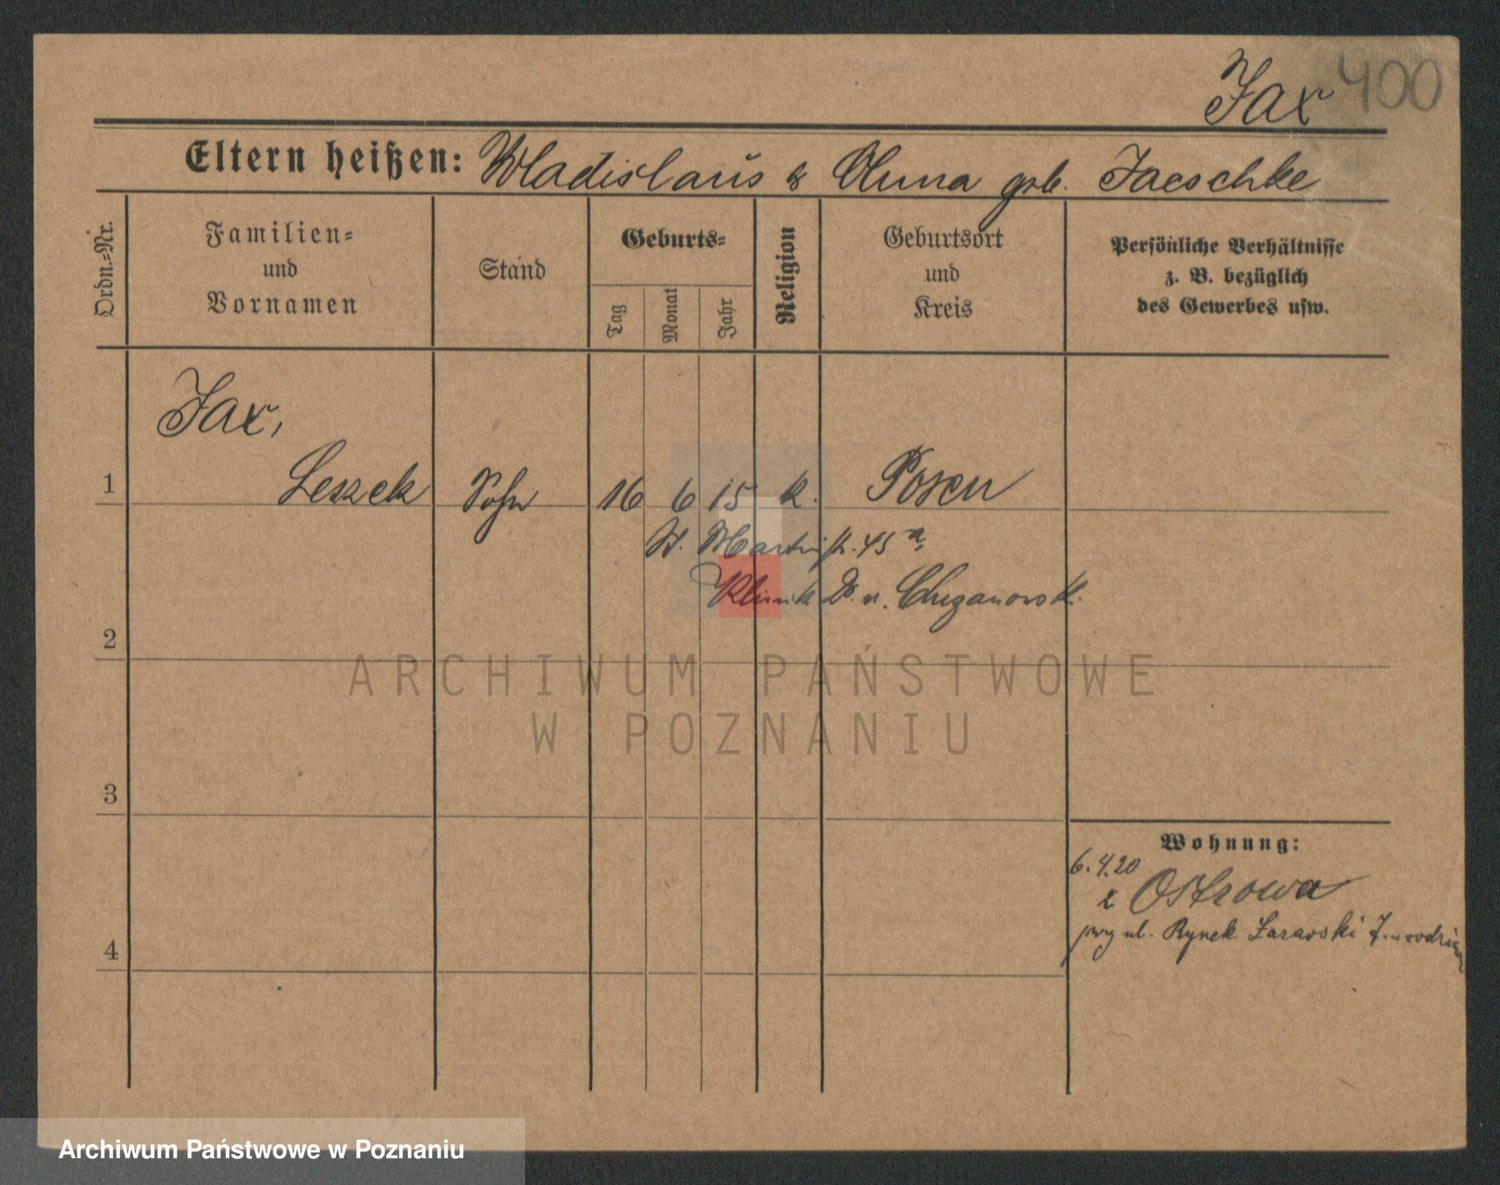 Jax 400
Eltern heißen: Wladislaus & Anna geb. Jaeschke
Ordn.=Nr.
Familien=
und
Vornamen
Stand
Geburts=
Tag
Monat
Jahr
Religion
Geburtsort
und
Kreis
Persönliche Verhältnisse
z. B. bezüglich
des Gewerbes usw.
Jax,
1 Leszek Sohn 16 6 15 k. Posen
St. Martinstr. 45 a,
Klinik Dr. v.
2
ARCHIWUM PAŃSTWOWE
W POZNANIU
3
Wohnung:
6.4.20
z Ostrowa
przy ul. Rynek
4
Archiwum Państwowe w Poznaniu